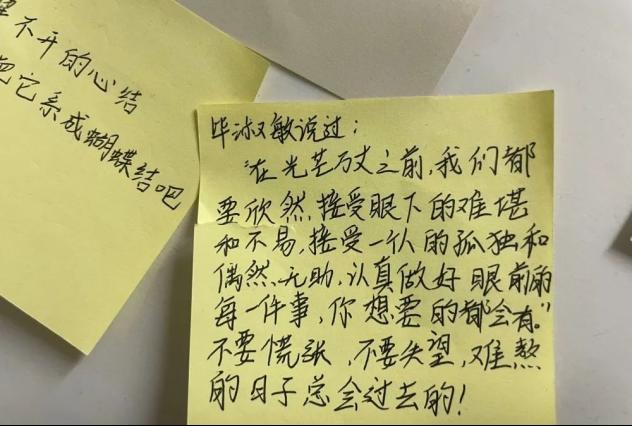 不开的心结
把它系成蝴蝶结吧
毕淑敏说过：
“在光芒万丈之前，我们都
要欣然接受眼下的难堪
和不易，接受一个人的孤独和
偶然无助，认真做好眼前的
每一件事，你想要的都会有。”
不要慌张，不要失望，难熬
的日子总会过去的！